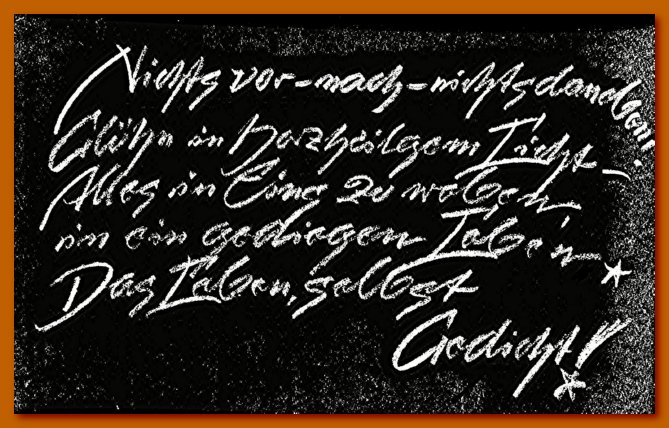 Nichts vor-nach-nichts daneben!
Glühn in herzheilgem Licht-
Alles in Eins zu weben,
in ein gediegen Lebe'n*
Das Leben, selbst
Gedicht!*